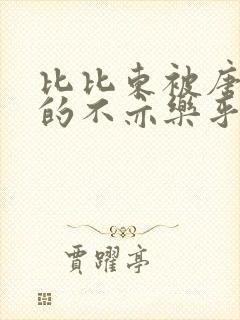 比比东被唐
的不亦樂乎
賈躍亭